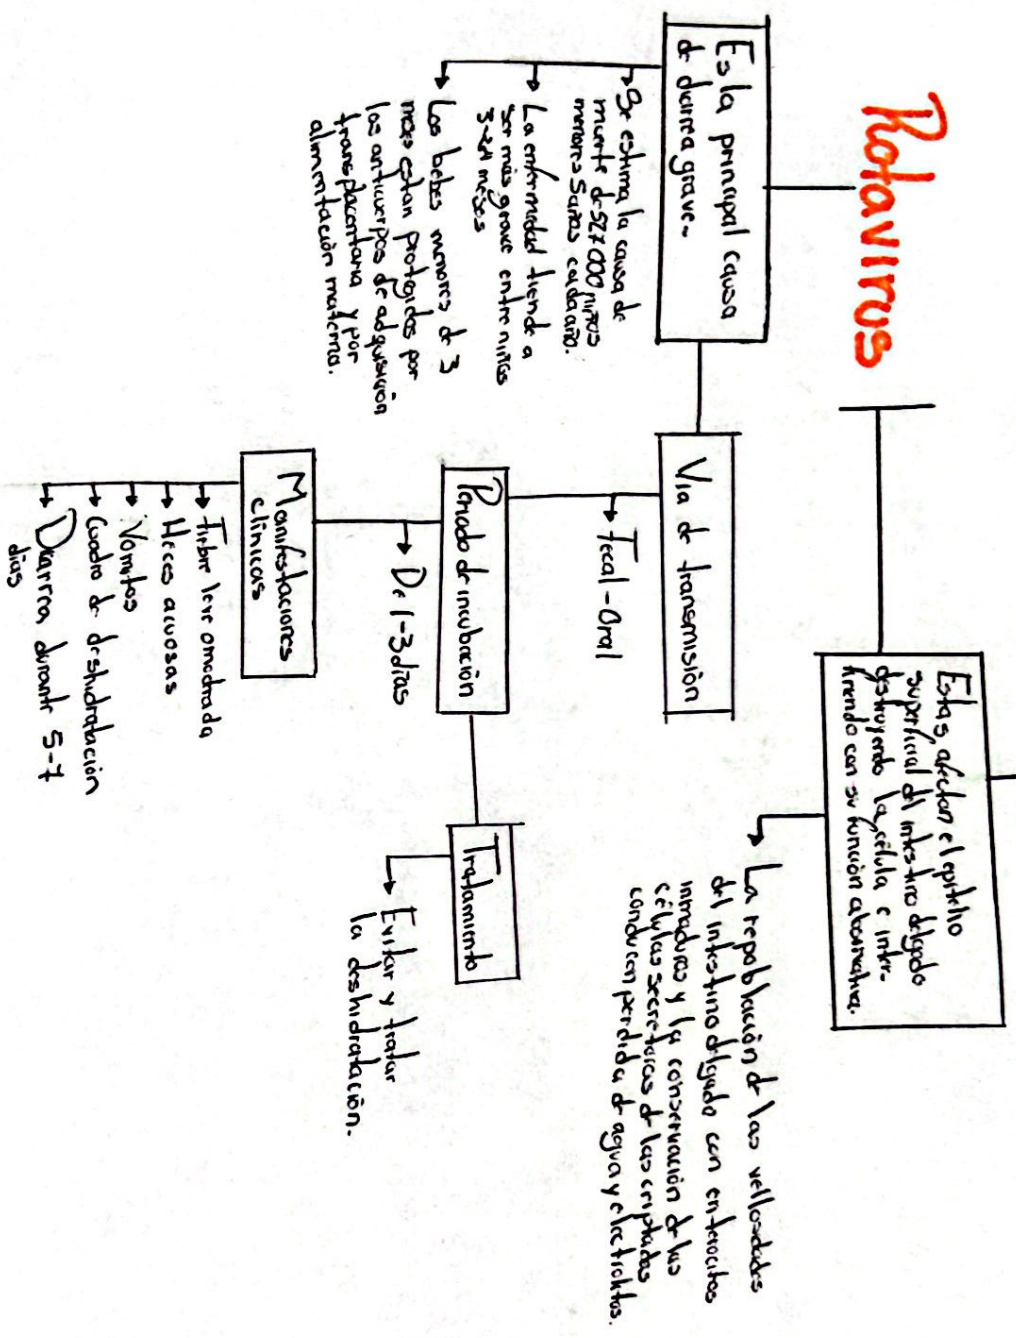 Rotavirus
Es la principal causa
de diarrea grave.
Se estima la causa de
muerte de 527 000 niños
menores 5 años cada año.
La enfermedad tiende a
ser más grave entre niños
3-24 meses
Los bebes menores de 3
meses estan protegidos por
los anticuerpos de adquisición
transplacentaria y por
alimentación materna.
Via de transmisión
Fecal-Oral
Periodo de incubación
De 1-3 dias
Manifestaciones
clínicas
Fiebre leve o modrada
Heces acuosas
Vomitos
Cuadro de deshidratación
Diarrea durante 5-7
dias
Tratamiento
Evitar y tratar
la deshidratación.
Estas afectan el epitelio
superficial del intestino delgado
destruyendo la célula e inter-
firiendo con su función absortiva.
La repoblación de las vellosidades
del intestino delgado con enterocitos
inmaduros y la conservación de las
células secretoras de las criptadas
conducen perdida de agua y electrolitos.